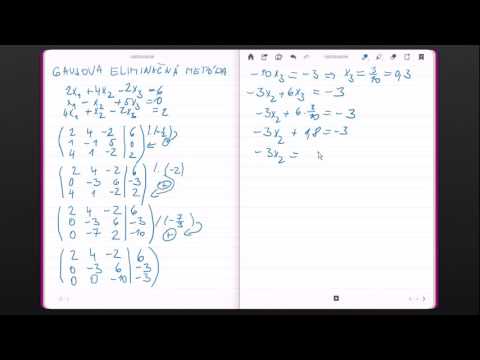 GAUSOVA ELIMINAČNÁ METÓDA
2x₁+4x₂−2x₃=6
x₁−x₂+5x₃=0
4x₁+x₂−2x₃=2
2 4 −2 | 6 /·(−1/2)
1 −1 5 | 0 +
4 1 −2 | 2
2 4 −2 | 6 /·(−2)
0 −3 6 | −3
4 1 −2 | 2 +
2 4 −2 | 6
0 −3 6 | −3 /·(−7/3)
0 −7 2 | −10 +
2 4 −2 | 6
0 −3 6 | −3
0 0 −10 | −3
−10x₃=−3 ⇒ x₃=3/10=0,3
−3x₂+6x₃=−3
−3x₂+6·3/10=−3
−3x₂+1,8=−3
−3x₂=